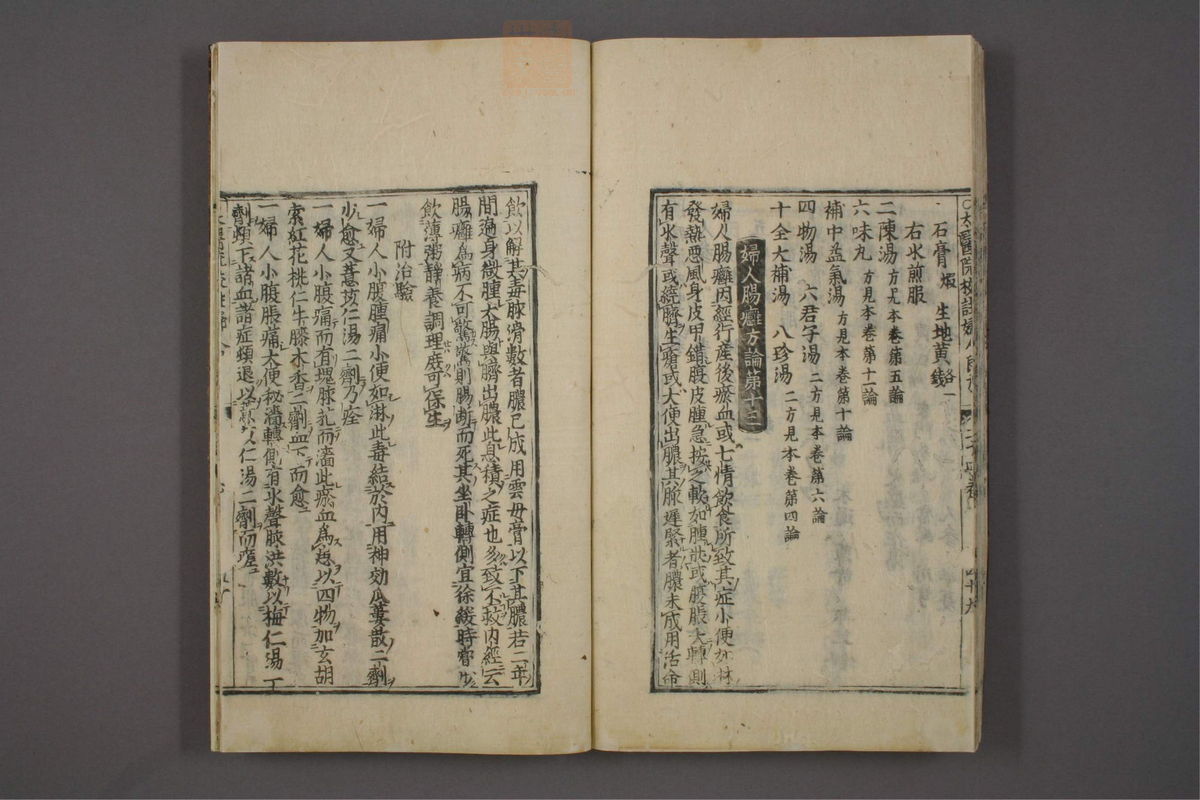 石膏煅 生地黃各一錢
右水煎服
二陳湯方見本卷第五論
六味丸方見本卷第十一論
補中益氣湯方見本卷第十論
四物湯 六君子湯二方見本卷第六論
十全大補湯 八珍湯二方見本卷第四論
婦人腸癰方論第十三
婦人腸癰因經行産後瘀血或七情飲食所致其症小便如淋
發熱惡風身皮甲錯腹皮腫急按之軟如腫狀或腹脹大轉側
有水聲或繞臍生瘡或大便出膿其脉遲緊者膿未成用活命
飲以解其毒脉滑數者膿已成用雲母膏以下其膿若二年
間遍身微腫大腸與臍出膿此息積之症也多致不救內經云
腸癰爲病不可驚驚則腸斷而死其坐臥轉側宜徐緩時嘗少
飲薄粥靜養調理庶可保生
附治驗
一婦人小腹腫痛小便如淋此毒結於內用神効瓜蔞散二劑
少愈又薏苡仁湯二劑乃痊
一婦人小腹痛而有塊脉芤而濇此瘀血爲患以四物加玄胡
索紅花桃仁牛膝木香二劑血下而愈
一婦人小腹脹痛大便秘澁轉側有水聲脉洪數以梅仁湯一
劑頓下諸血諸症頓退以薏苡仁湯二劑而瘥